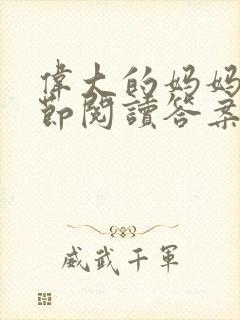 偉大的妈妈
節閱讀答案
威武千軍